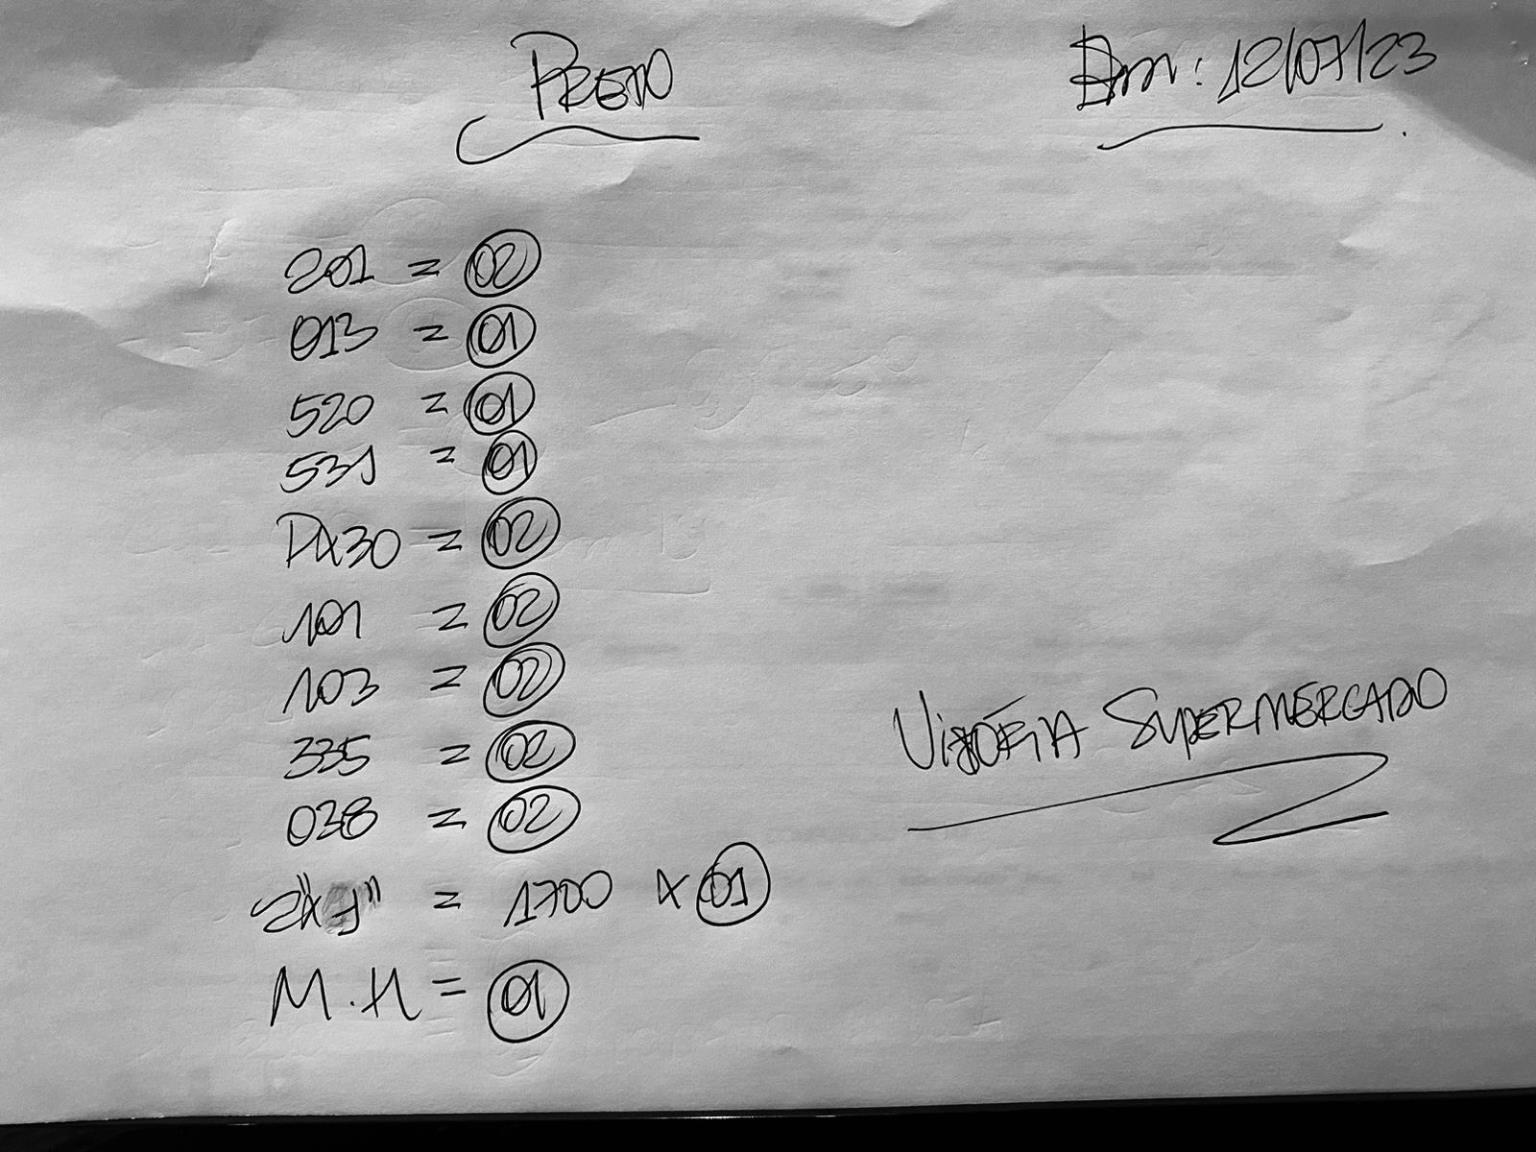 PRETO
Em: 12/07/23
201 = 02
013 = 01
520 = 01
531 = 01
PX30 = 02
101 = 02
103 = 02
335 = 02
038 = 02
= 1700 x 01
M.H = 01
SUPERMERCADO